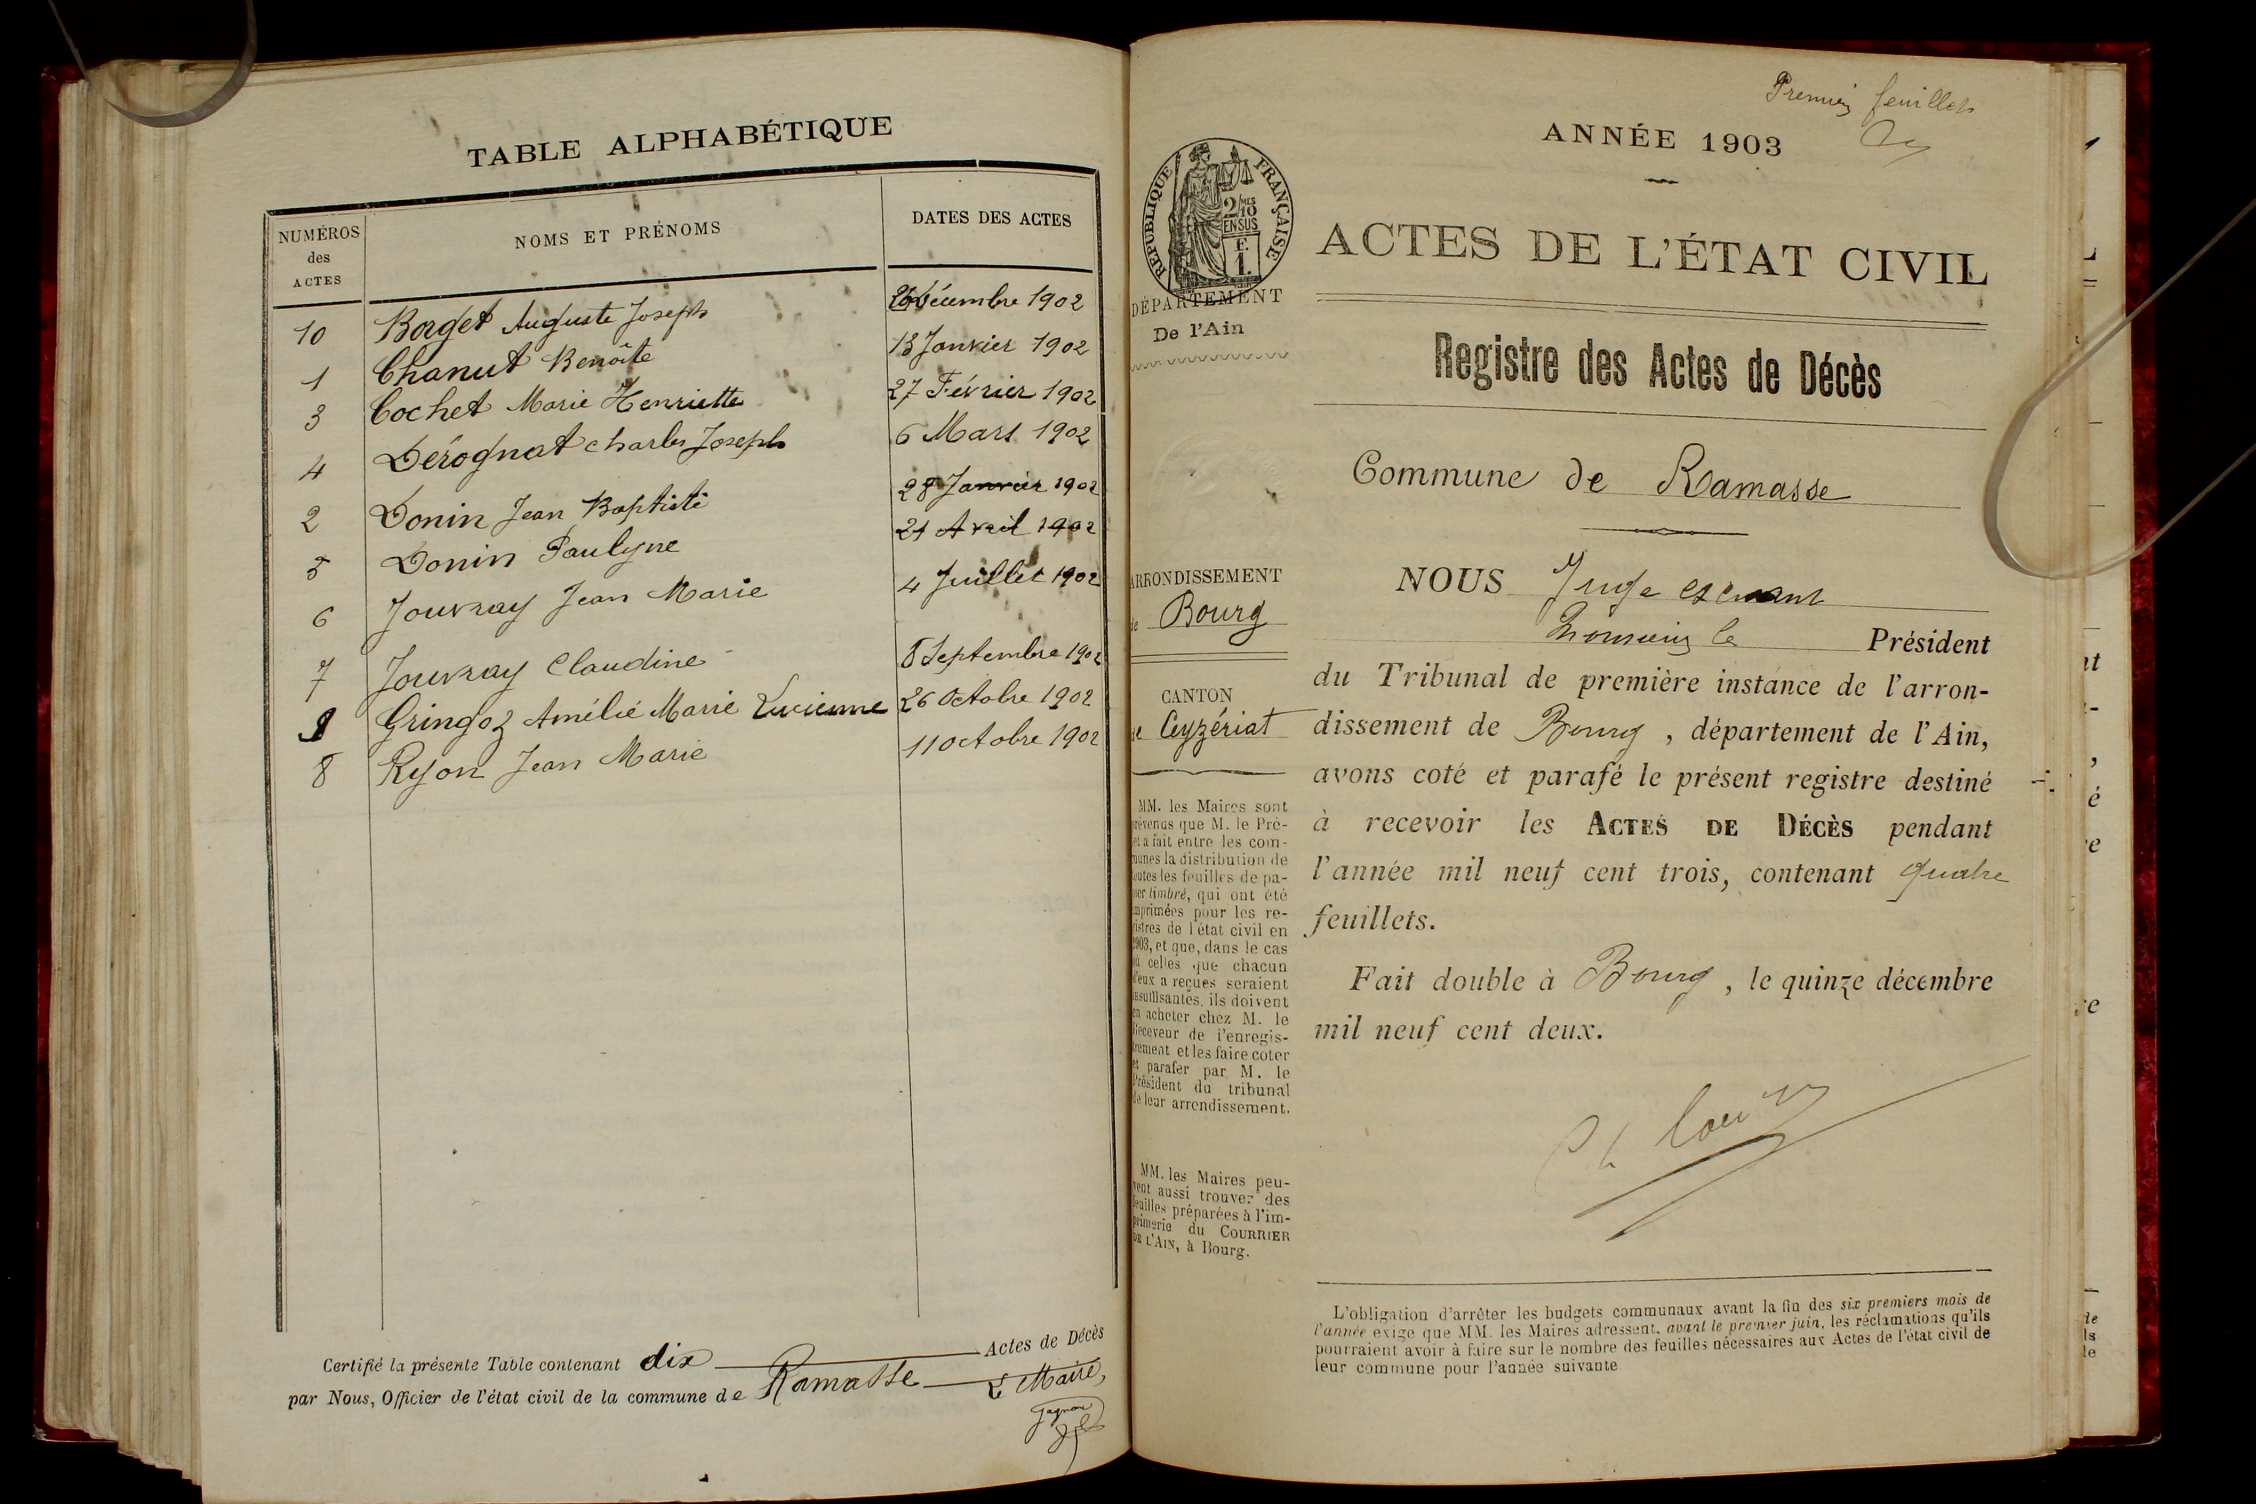 TABLE ALPHABÉTIQUE
NUMÉROS des ACTES NOMS ET PRÉNOMS DATES DES ACTES
10 Borget Auguste Joseph Décembre 1902
1 Chanut Benoîte 13 Janvier 1902
3 Cochet Marie Henriette 27 Février 1902
4 Dérognat Charles Joseph 6 Mars 1902
2 Donin Jean Baptiste 28 Janvier 1902
5 Donin Paulyne 21 Avril 1902
6 Jouvray Jean Marie 4 Juillet 1902
7 Jouvray Claudine 8 Septembre 1902
9 Gringoz Amélie Marie Lucienne 26 Octobre 1902
8 Ryon Jean Marie 11 Octobre 1902
Certifié la présente Table contenant dix Actes de Décès
par Nous, Officier de l'état civil de la commune de Ramasse
Le Maire,
Premier feuillet
ANNÉE 1903
RÉPUBLIQUE FRANÇAISE
2/10 EN SUS
F. 1.
ACTES DE L'ÉTAT CIVIL
DÉPARTEMENT
De l'Ain
Registre des Actes de Décès
Commune de Ramasse
ARRONDISSEMENT
de Bourg
CANTON
de Ceyzériat
NOUS Juge
le Président
du Tribunal de première instance de l'arron-
dissement de Bourg , département de l'Ain,
avons coté et parafé le présent registre destiné
à recevoir les ACTES DE DÉCÈS pendant
l'année mil neuf cent trois, contenant quatre
feuillets.
Fait double à Bourg , le quinze décembre
mil neuf cent deux.
MM. les Maires sont
prévenus que M. le Pré-
fet a fait entre les com-
munes la distribution de
toutes les feuilles de pa-
pier timbré, qui ont été
imprimées pour les re-
gistres de l'état civil en
1903, et que, dans le cas
où celles que chacun
d'eux a reçues seraient
insuffisantes, ils doivent
en acheter chez M. le
Receveur de l'enregis-
trement et les faire coter
et parafer par M. le
Président du tribunal
de leur arrondissement.
MM. les Maires peu-
vent aussi trouver des
feuilles préparées à l'im-
primerie du COURRIER
DE L'AIN, à Bourg.
L'obligation d'arrêter les budgets communaux avant la fin des six premiers mois de
l'année exige que MM. les Maires adressent, avant le premier juin, les réclamations qu'ils
pourraient avoir à faire sur le nombre des feuilles nécessaires aux Actes de l'état civil de
leur commune pour l'année suivante